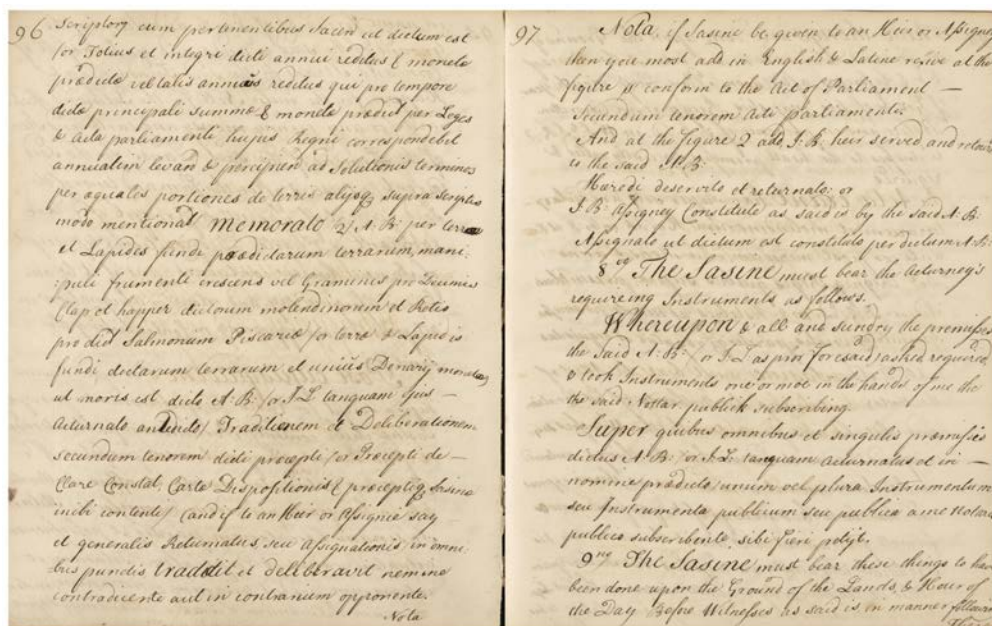 96
Scriptorum cum pertinentibus Jacen ut dictum est
/or Totius et integri dicti annui reditus & monete
prædicte vel talis annuus reditus qui pro tempore
dicte principali summe & monete prædict per Leges
& acta parliamenti hujus Regni correspondebit
annuatim levan & percipien ad Solutionis terminos
per æquales portiones de terris alijsq supra scriptis
modo mentionat memorato 2/ A: B: per terræ
et Lapides fundi prædictarum terrarum, mani:
:puli frumenti crescens vel Graminis pro Decimis
Clap et happer dictorum molendinorum et Retis
pro dict Salmonum Piscariæ /or terræ & Lapidis
fundi dictarum terrarum et unius Denarij monetæ/
ut moris est dicto A: B: /or J: L: tanquam ejus –
acturnato antedicto/ Traditionem et Deliberationem
secundum tenorem dicti precepti /or Præcepti de –
Clare Constat, Cartæ Dispositionis & præceptiq Sasine
inibi contente/ (and if to an Heir or assignie say
et generalis Returnatus, seu assignationis in omni:
bus pundis tradidit et deliberavit nemine
contradicente aut in contrarium opponente.
Nota
97
Nota, if Sasine be given to an Heir or Assigney
then you most add in English & Latine rexive at the
figure 1 conform to the Act of Parliament –
Secundum tenorem acti parliamenti.
And at the figure 2 add, J: B: heir served and retour
to the said A: B:
Hæredi deservito et returnato: or
J: B: Assigney Constitute as said is by the said A: B:
Assignato ut dictum est constituto per dictum A: B:
8vo The Sasine must bear the Acturney's
requireing Instruments as follows.
Whereupon & all and sundry the premisses
the said A: B: /or J: L as pror foresaid/ asked required
& took Instruments one or moe in the hands of me the
the said Nottar publick subscribing.
Super quibus omnibus et singulis præmissis
dictus A: B: /or J: L: tanquam acturnatus et in –
nomine prædicto/ unum vel plura Instrumentum
seu Instrumenta publicum seu publica a me Notario
publico subscribente, sibi fieri petijt.
9no The Sasine must bear these things to have
been done upon the Ground of the Lands, & Hour of
the Day Before Witnesses as said is in manner following